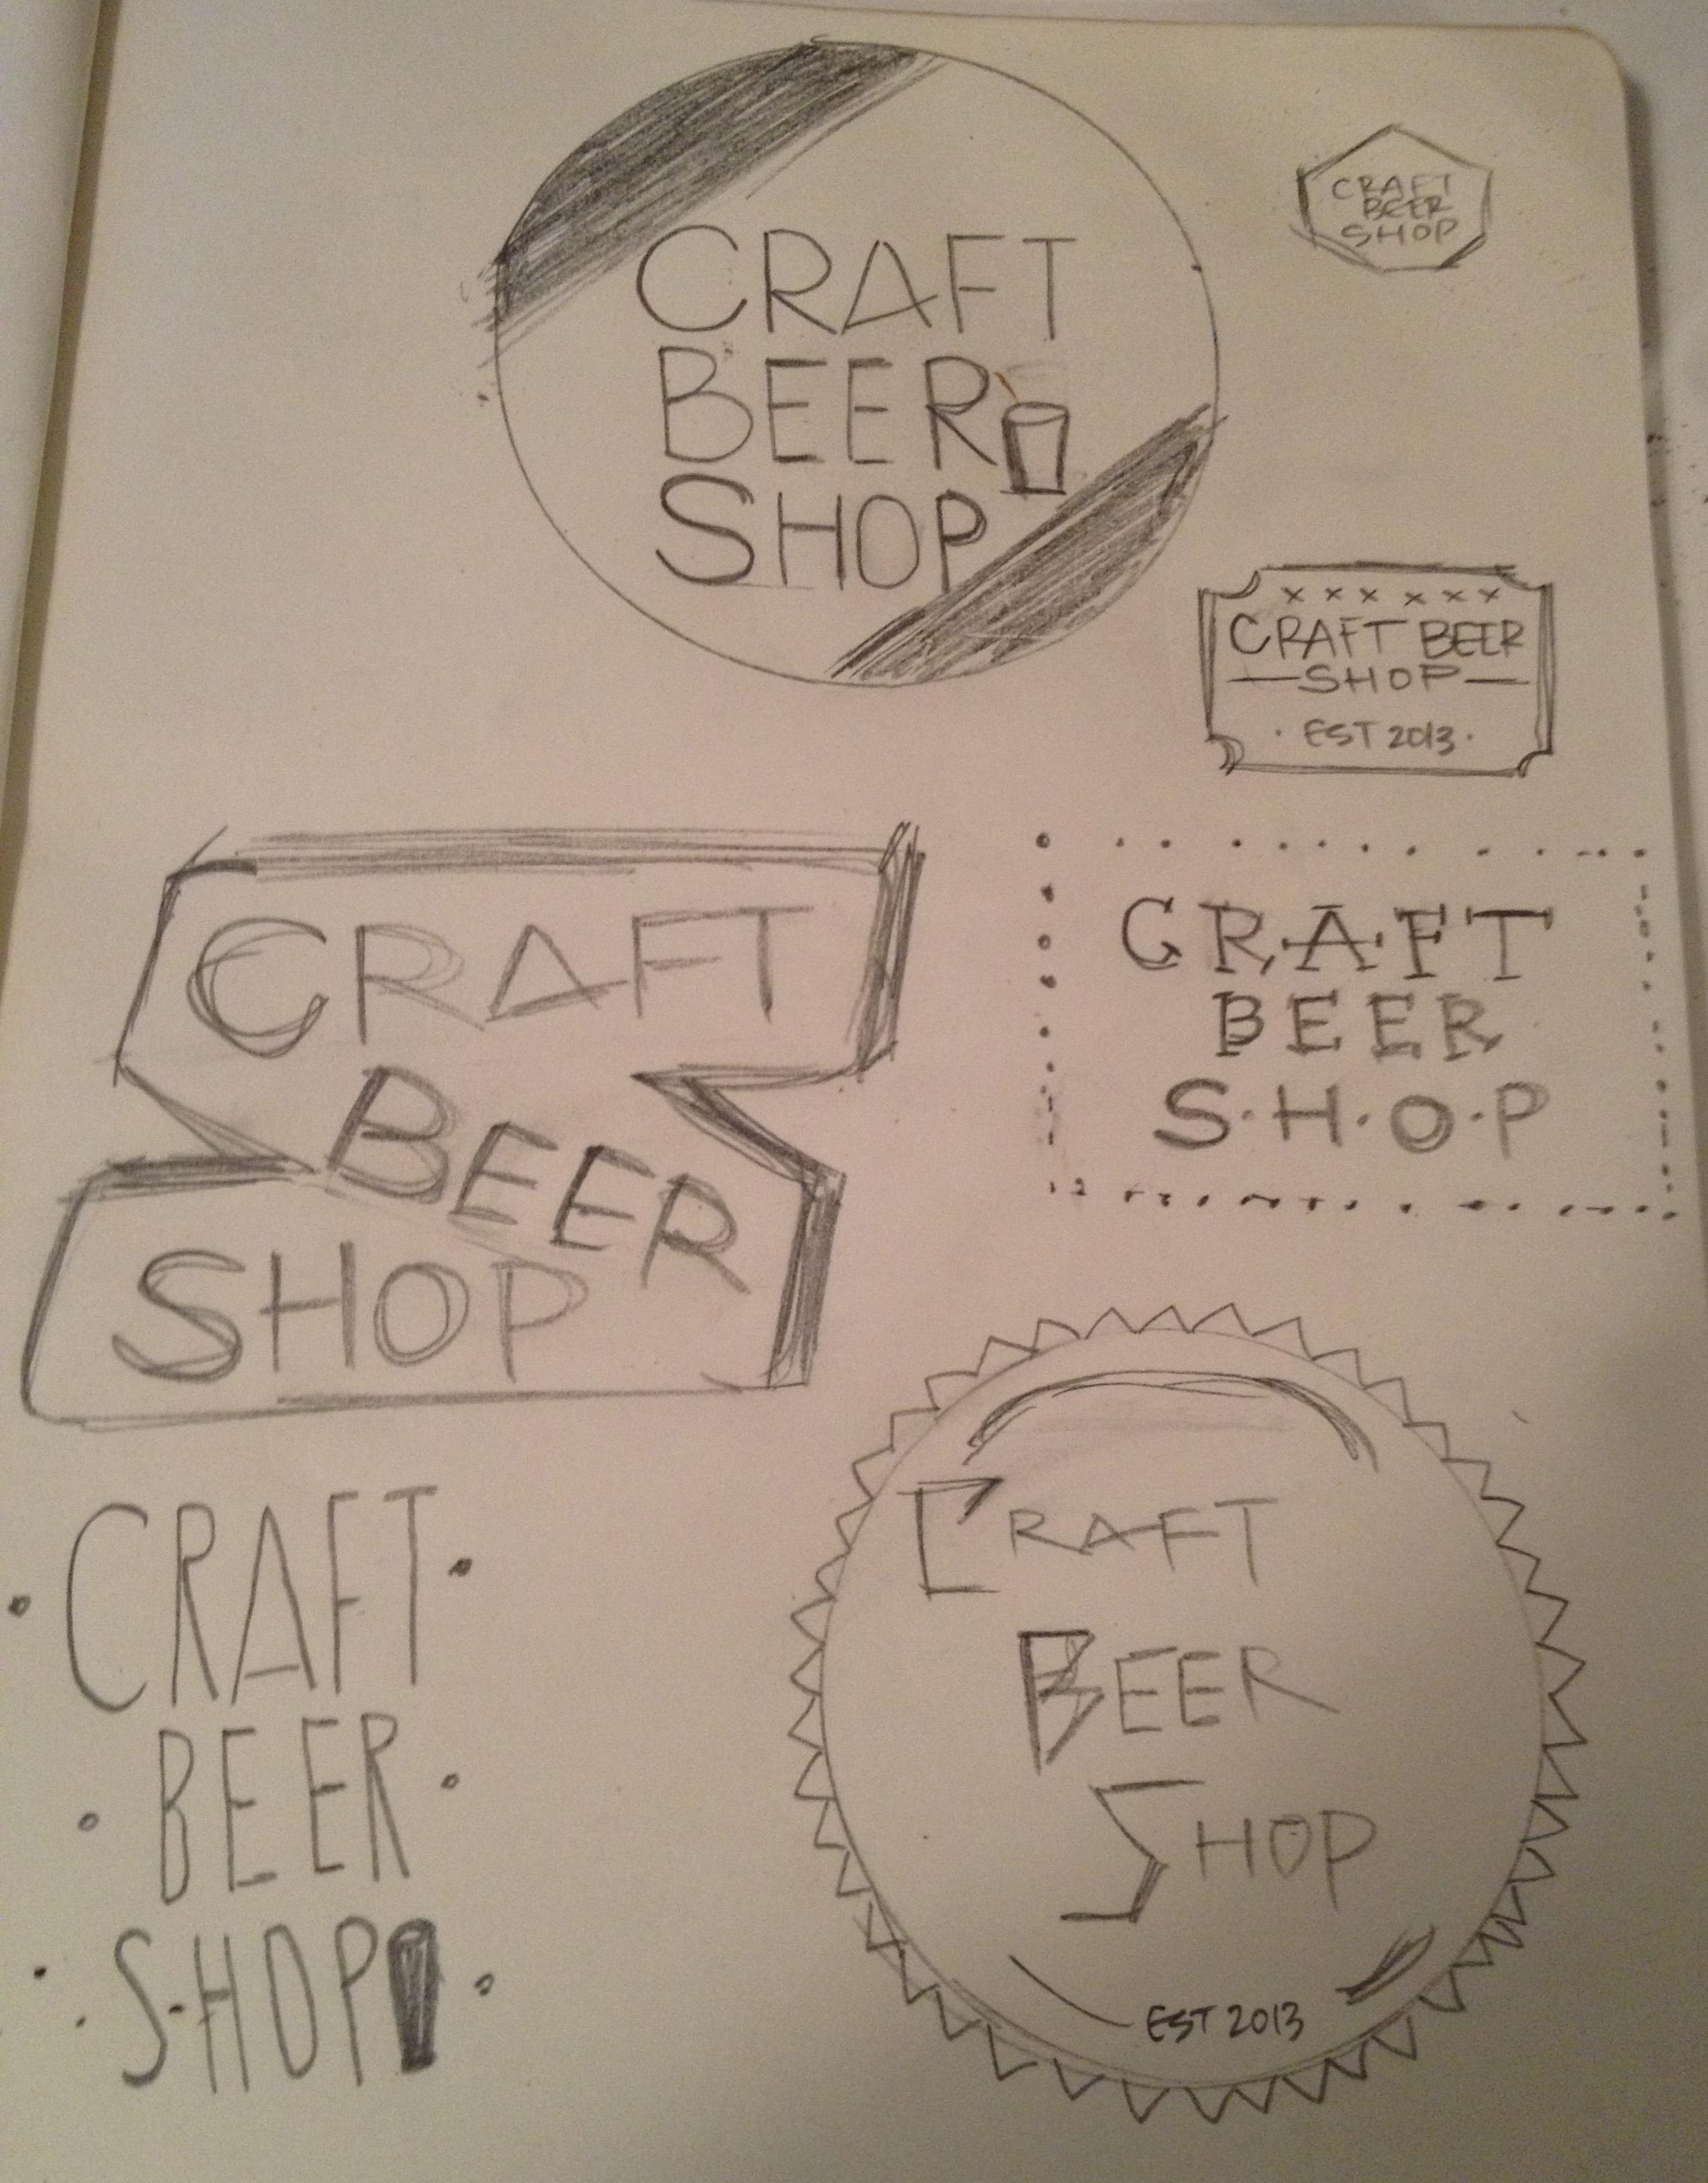 CRAFT
BEER
SHOP
CRAFT
BEER
SHOP
x x x x x x
CRAFT BEER
—SHOP—
· EST 2013 ·
CRAFT
BEER
SHOP
CRAFT
BEER
S·H·O·P
CRAFT
BEER
SHOP
CRAFT
BEER
SHOP
EST 2013